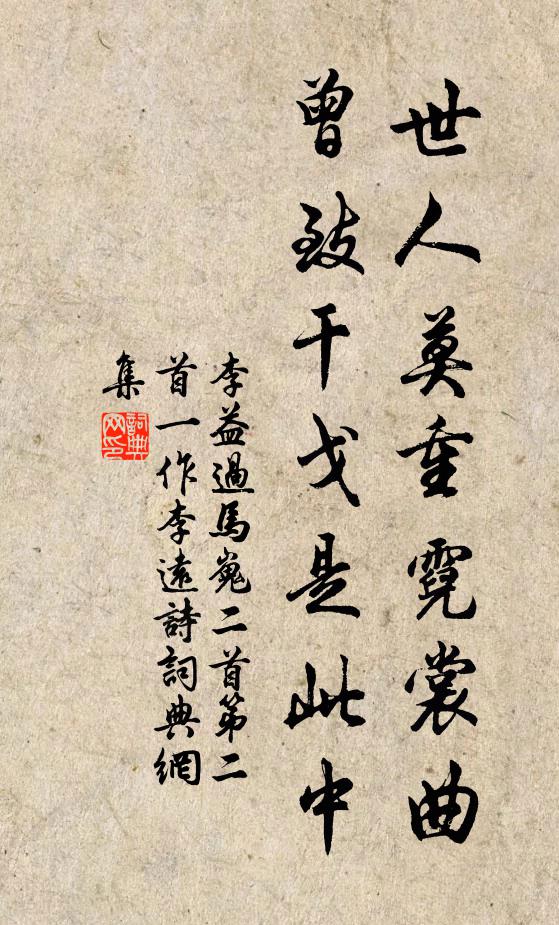 世人莫重霓裳曲
曾致干戈是此中
李益過馬嵬二首第二
首一作李遠詩詞典網
集
詞典網印